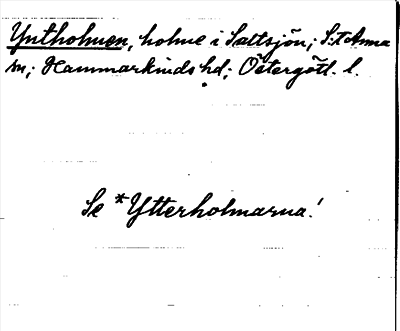 Yntholmen, holme i Saltsjön; S:t Anna
sn; Hammarkinds hd; Östergötl. l.
Se *Ytterholmarna!